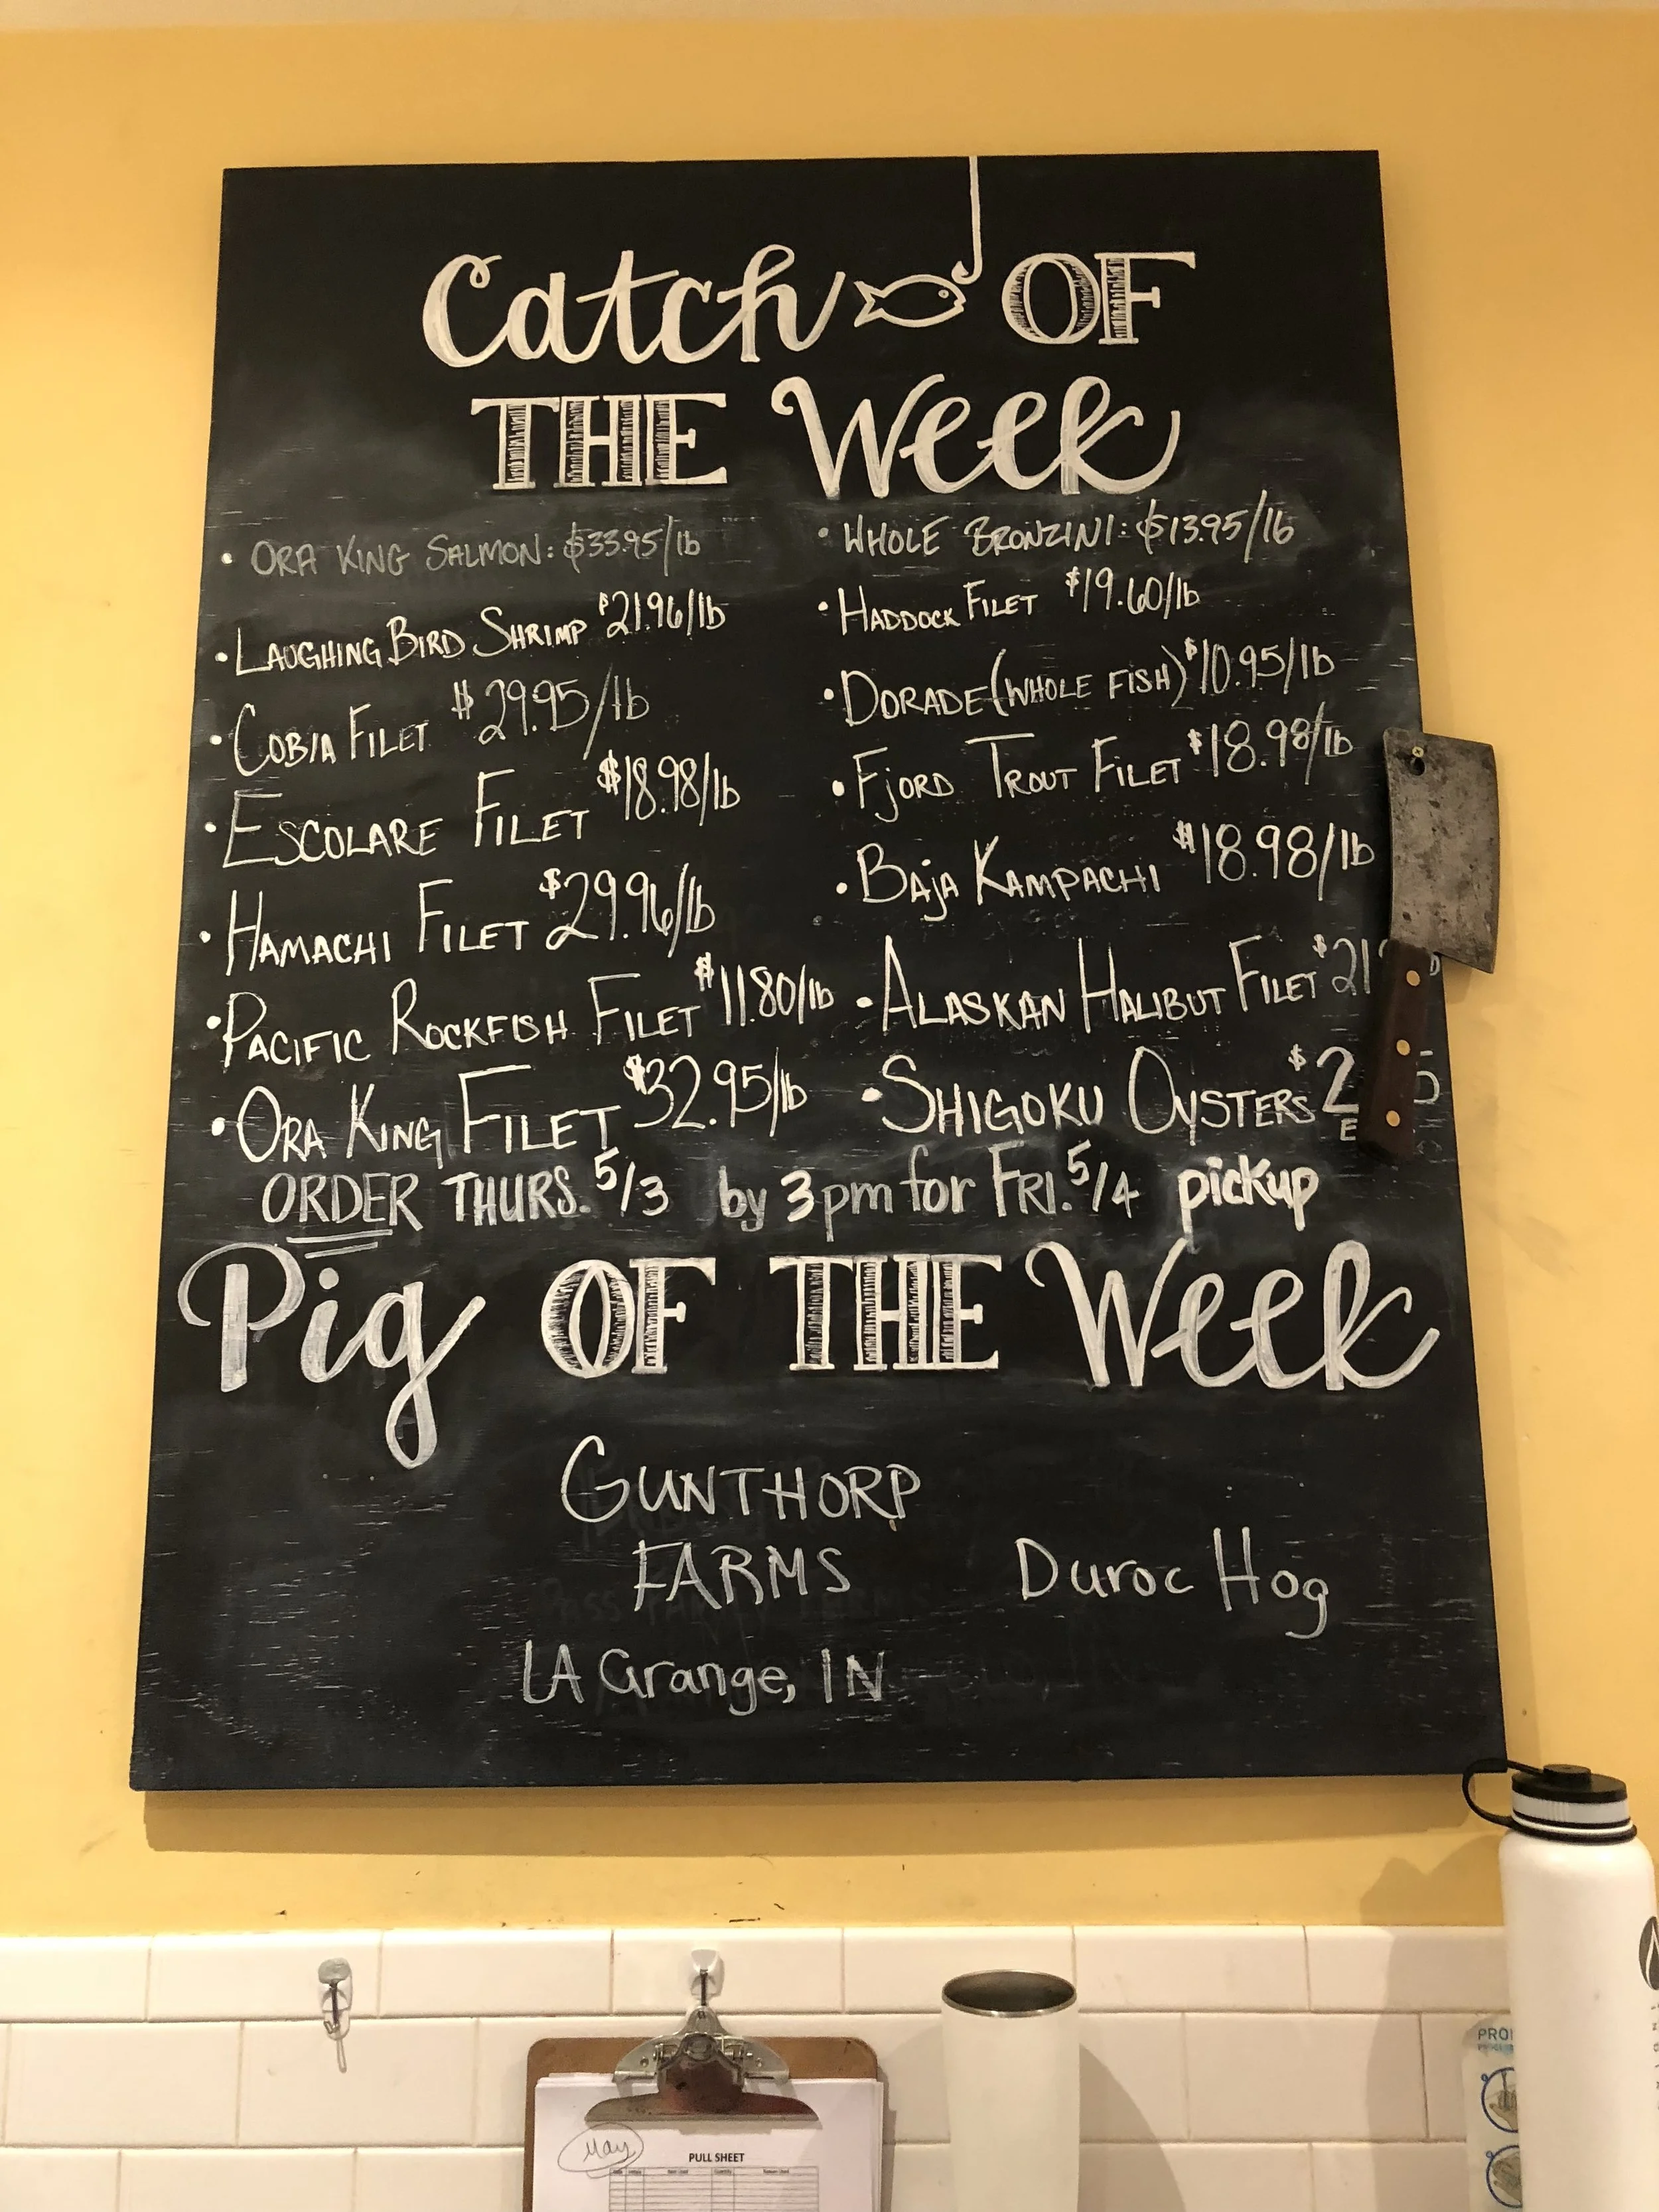 Catch OF
THE Week
• ORA KING SALMON: $33.95/lb
• LAUGHING BIRD SHRIMP $21.96/lb
• COBIA FILET $29.95/lb
• ESCOLARE FILET $18.98/lb
• HAMACHI FILET $29.96/lb
• PACIFIC ROCKFISH FILET $11.80/lb
• ORA KING FILET $32.95/lb
• WHOLE BRONZINI: $13.95/lb
• HADDOCK FILET $19.60/lb
• DORADE (WHOLE FISH) $10.95/lb
• Fjord TROUT FILET $18.98/lb
• BAja KAMPACHI $18.98/lb
• ALASKAN HALIBUT FILET
• SHIGOKU OYSTERS
ORDER THURS. 5/3 by 3pm for FRI. 5/4 pickup
Pig OF THE Week
GUNTHORP
FARMS
Duroc Hog
LA Grange, IN
May
PULL SHEET